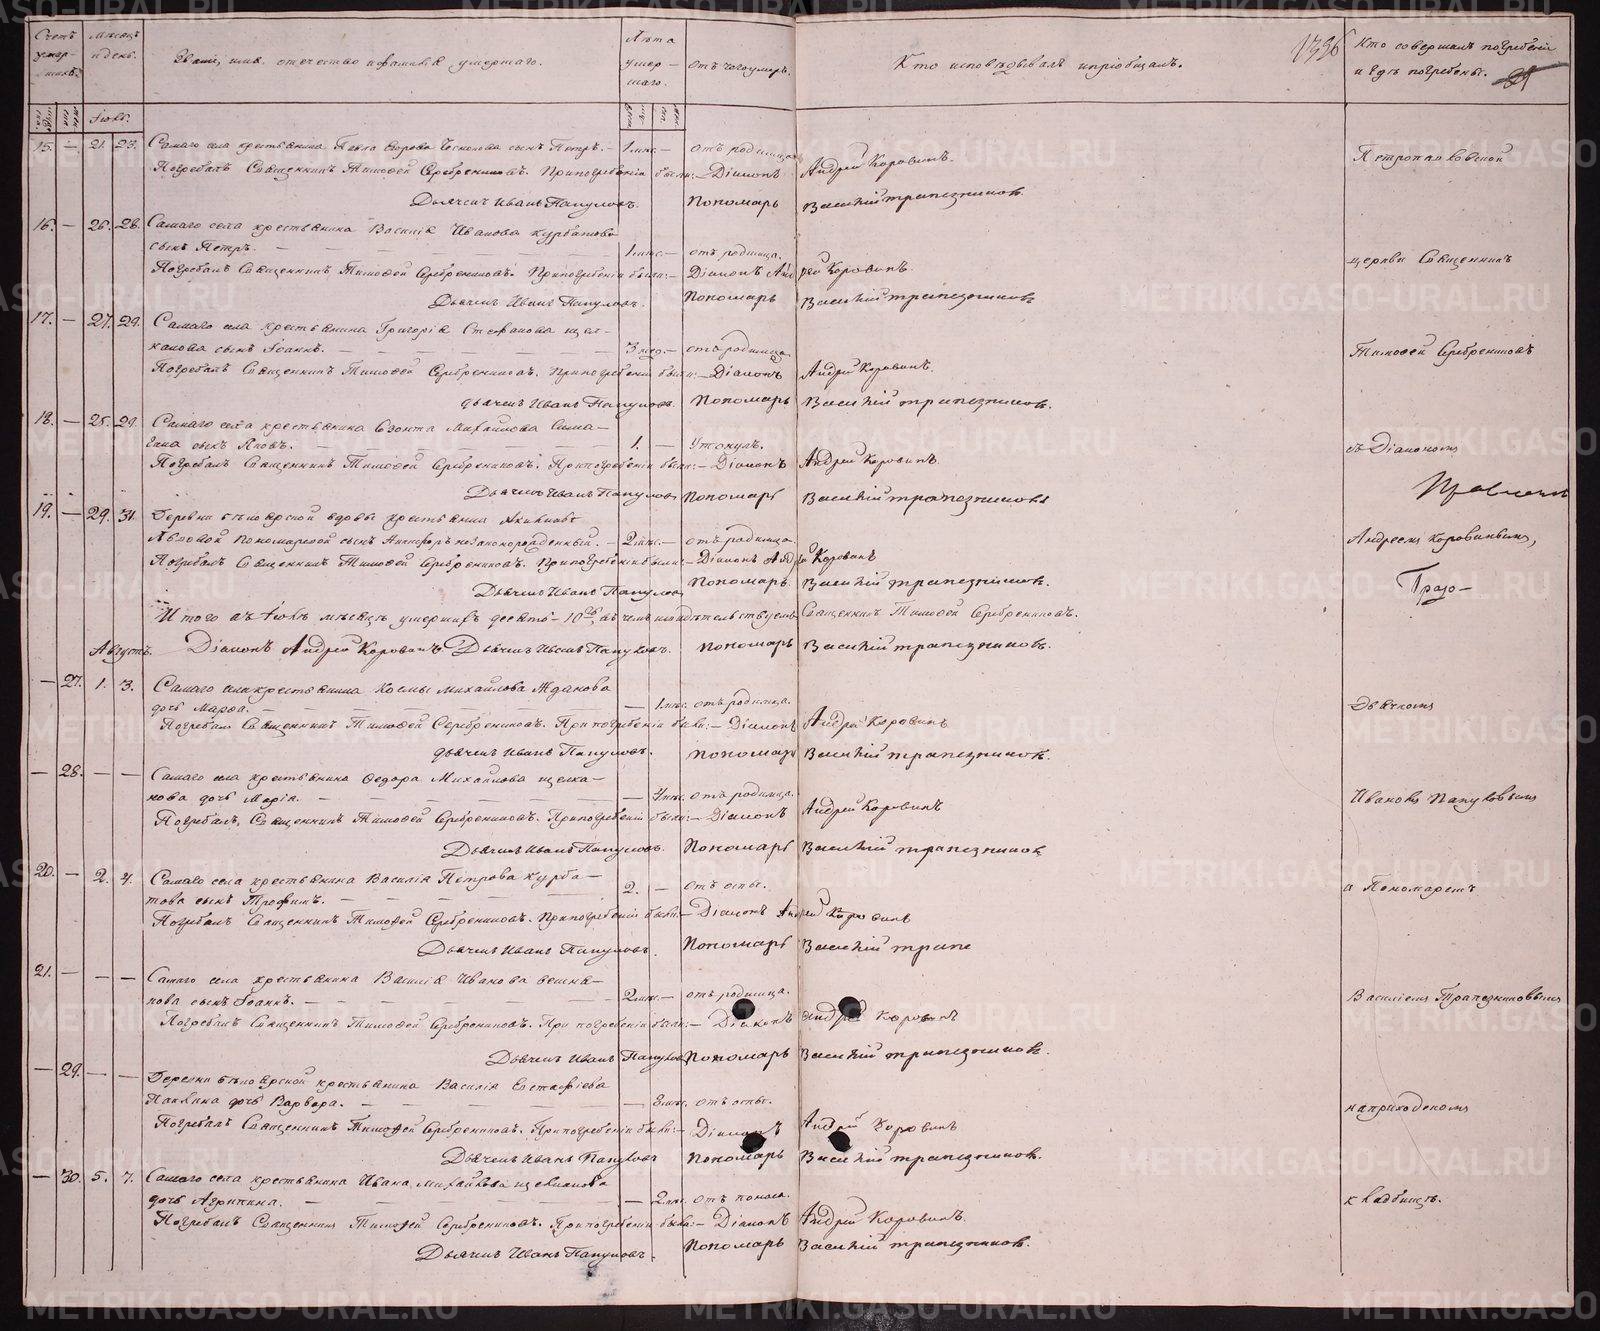 Счетъ умершихъ.
Мѣсяцъ и день.
Званіе, имя, отечество и фамилія умершаго.
Лѣта умершаго.
Отъ чего умеръ.
Кто исповѣдывалъ и пріобщалъ.
1396
Кто совершалъ погребеніе и гдѣ погребены.
Іюль.
15. — 21. 23. Самаго села крестьянина Павла сынъ Петръ. — 1 мѣс. — отъ родимца
Погребалъ Священникъ Тимофей Серебренниковъ. При погребеніи были: — Діаконъ Андрей Коровинъ.
Дьячекъ Иванъ Папуловъ. Пономарь Василій Трапезниковъ
16. — 26. 28. Самаго села крестьянина Василія Иванова Курбатова
сынъ Петръ. — 1 мѣс. — отъ родимца.
Погребалъ Священникъ Тимофей Серебренниковъ. При погребеніи были: — Діаконъ Андрей Коровинъ.
Дьячекъ Иванъ Папуловъ. Пономарь Василій Трапезниковъ
17. — 27. 29. Самаго села крестьянина Григорія Стефанова Щел-
канова сынъ Іоаннъ. — 3 нед. — отъ родимца
Погребалъ Священникъ Тимофей Серебренниковъ. При погребеніи были: — Діаконъ Андрей Коровинъ.
Дьячекъ Иванъ Папуловъ. Пономарь Василій Трапезниковъ.
18. — 25. 29. Самаго села крестьянина Михайлова
сынъ Яковъ. — 1. — Утонулъ.
Погребалъ Священникъ Тимофей Серебренниковъ. При погребеніи были: — Діаконъ Андрей Коровинъ.
Дьячекъ Иванъ Папуловъ Пономарь Василій Трапезниковъ
19. — 29. 31. Деревни Бѣлоярской вдовы крестьянки
Львовой Пономаревой сынъ незаконорожденный. — 2 мѣс. — отъ родимца
Погребалъ Священникъ Тимофей Серебренниковъ. При погребеніи были: — Діаконъ Андрей Коровинъ
Дьячекъ Иванъ Папуловъ Пономарь Василій Трапезниковъ.
Итого въ Іюлѣ мѣсяцѣ умершихъ десять — 10 въ чемъ и свидѣтельствуемъ Священникъ Тимофей Серебренниковъ.
Діаконъ Андрей Коровинъ Дьячекъ Иванъ Папуловъ. Пономарь Василій Трапезниковъ.
Августъ.
— 27. 1. 3. Самаго села крестьянина Космы Михайлова Жданова
дочь Марѳа. — 1 мѣс. отъ родимца.
Погребалъ Священникъ Тимофей Серебренниковъ. При погребеніи были: — Діаконъ Андрей Коровинъ
Дьячекъ Иванъ Папуловъ. Пономарь Василій Трапезниковъ.
— 28. — — Самаго села крестьянина Ѳедора Михайлова Щелка-
нова дочь Марія. — мѣс. отъ родимца.
Погребалъ Священникъ Тимофей Серебренниковъ. При погребеніи были: — Діаконъ Андрей Коровинъ
Дьячекъ Иванъ Папуловъ. Пономарь Василій Трапезников
20. — 2. 4. Самаго села крестьянина Василія Петрова Курба-
това сынъ Трофимъ. — 2. — отъ оспы.
Погребалъ Священникъ Тимофей Серебренниковъ. При погребеніи были: — Діаконъ Андрей Коровинъ
Дьячекъ Иванъ Папуловъ. Пономарь Василій Трапе
21. — — — Самаго села крестьянина Василія Иванова
сынъ Іоаннъ. — 2 мѣс. — отъ родимца.
Погребалъ Священникъ Тимофей Серебренниковъ. При погребеніи были: — Діаконъ Андрей Коровинъ
Дьячекъ Иванъ Папуловъ Пономарь Василій Трапезниковъ.
— 29. — — Деревни Бѣлоярской крестьянина Василія Евстафіева
дочь Варвара. — 8 мѣс. отъ оспы.
Погребалъ Священникъ Тимофей Серебренниковъ. При погребеніи были: — Діаконъ Андрей Коровинъ
Дьячекъ Иванъ Папуловъ Пономарь Василій Трапезниковъ.
— 30. 5. 7. Самаго села крестьянина Ивана Михайлова Щелканова
дочь Агрипина. — 2 мѣс. отъ поноса.
Погребалъ Священникъ Тимофей Серебренниковъ. При погребеніи были: — Діаконъ Андрей Коровинъ.
Дьячекъ Иванъ Папуловъ. Пономарь Василій Трапезниковъ.
Петропавловской
церкви Священникъ
Тимофей Серебренниковъ
съ Діакономъ
Андреемъ Коровинымъ,
Дьячкомъ
Иваномъ Папуловымъ
и Пономаремъ
Василіемъ Трапезниковымъ
на приходскомъ
кладбищѣ.
METRIKI.GASO-URAL.RU